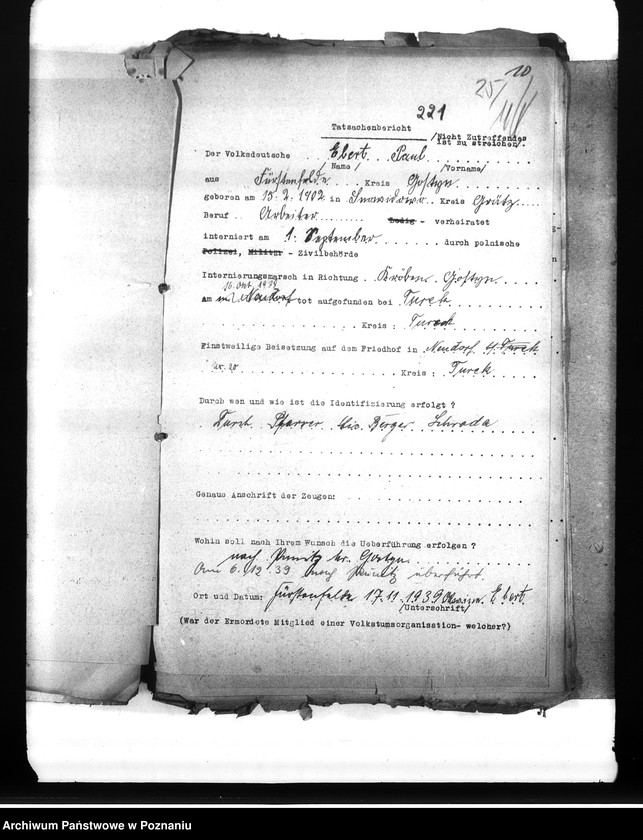 10
25
221
Tatsachenbericht
/Nicht Zutreffendes
ist zu streichen/.
Der Volksdeutsche Ebert Paul
/Name/ /Vorname/
aus Fürstenfelde Kreis Gostyn
geboren am 13.2.1902 in Kreis Grätz
Beruf Arbeiter ledig - verheiratet
interniert am 1. September durch polnische
Polizei, Militär - Zivilbehörde
Internierungsmarsch in Richtung Kröben Gostyn
16. Okt. 1939
am in Neudorf tot aufgefunden bei Turek
Kreis: Turek
Einstweilige Beisetzung auf dem Friedhof in Neudorf Turek
Nr. 20 Kreis: Turek
Durch wen und wie ist die Identifizierung erfolgt?
Durch Pfarrer Lic. Berger Schroda
Genaue Anschrift der Zeugen:
Wohin soll nach Ihrem Wunsch die Ueberführung erfolgen?
nach Punitz Kr. Gostyn
Am 6.12.39 nach Punitz überführt.
Ort und Datum: Fürstenfelde 17.11.1939 Ebert.
/Unterschrift/
(War der Ermordete Mitglied einer Volkstumsorganisation- welcher?)
Archiwum Państwowe w Poznaniu